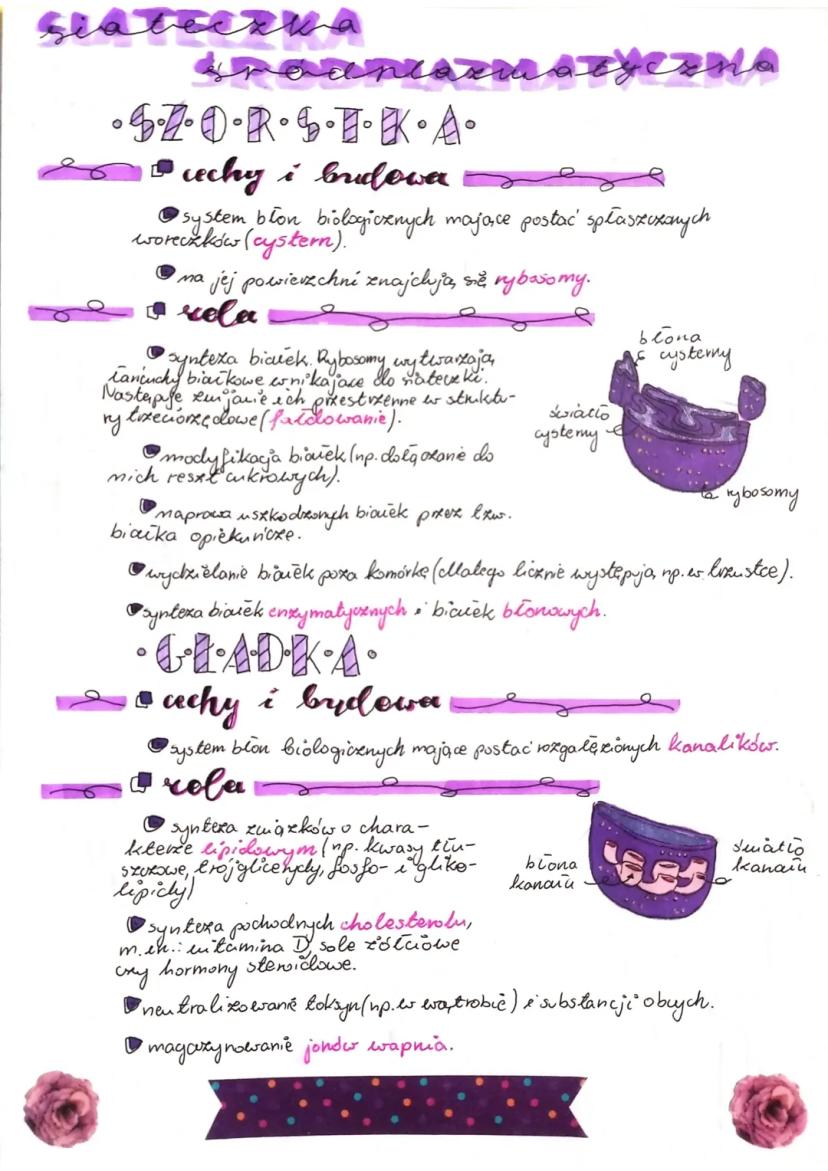 siateczka
śródplazmatyczna
SZORSTKA
cechy i budowa
system błon biologicznych mające postać spłaszczonych
woreczków (cystern).
na jej powierzchni znajdują się rybosomy.
rola
synteza białek. Rybosomy wytwarzają
łańcuchy białkowe wnikające do siateczki.
Następuje zwijanie ich przestrzenne w struktu-
ry trzeciorzędowe (fałdowanie).
błona
cysterny
światło
cysterny
rybosomy
modyfikacja białek (np. dołączanie do
nich reszt cukrowych).
naprawa uszkodzonych białek przez tzw.
białka opiekuńcze.
wydzielanie białek poza komórkę (dlatego licznie występują np. w trzustce).
synteza białek enzymatycznych i białek błonowych.
GŁADKA
cechy i budowa
system błon biologicznych mające postać rozgałęzionych kanalików.
rola
synteza związków o chara-
kterze lipidowym (np. kwasy tłu-
szczowe, trójglicerydy, fosfo- i gliko-
lipidy)
błona
kanału
światło
kanału
synteza pochodnych cholesterolu,
m.in.: witamina D, sole żółciowe
czy hormony steroidowe.
neutralizowanie toksyn (np. w wątrobie) i substancji obcych.
magazynowanie jonów wapnia.